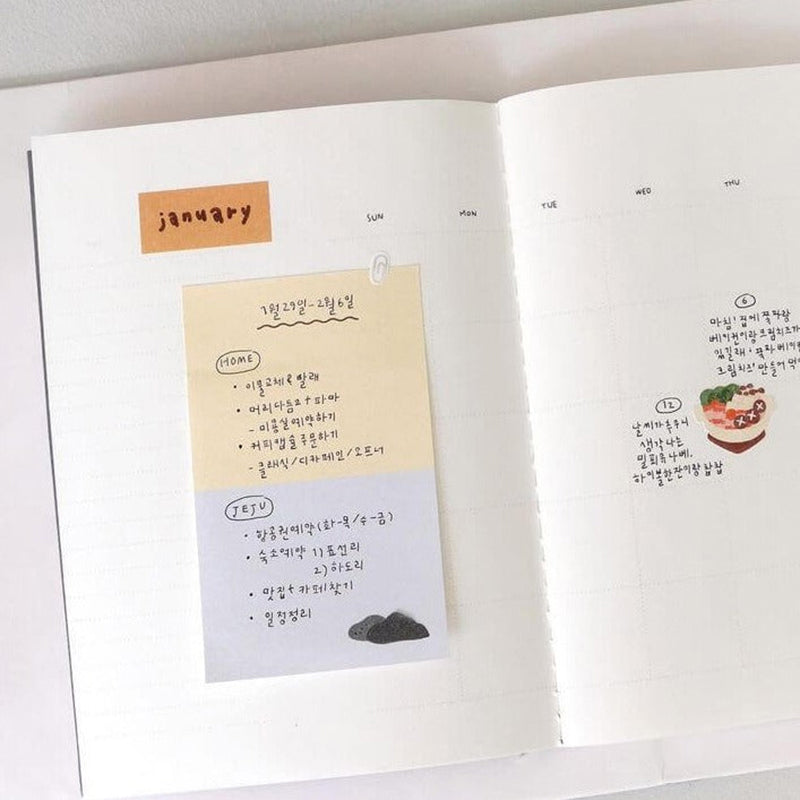 january
SUN MON TUE WED THU
1월 29일 - 2월 6일
HOME
• 이불교체 & 빨래
• 머리다듬고 + 파마
- 미용실예약하기
• 커피캡슐주문하기
- 클래식/디카페인/오프너
JEJU
• 항공권예약 (화-목/수-금)
• 숙소예약 1) 표선리
2) 하도리
• 맛집 + 카페찾기
• 일정정리
6
마침! 집에 쪽파랑
베이컨이랑 크림치즈가
있길래, 쪽파베이
크림치즈! 만들어 먹
12
날씨가 추우니
생각나는
밀푀유나베.
하이볼한잔이랑 찹찹